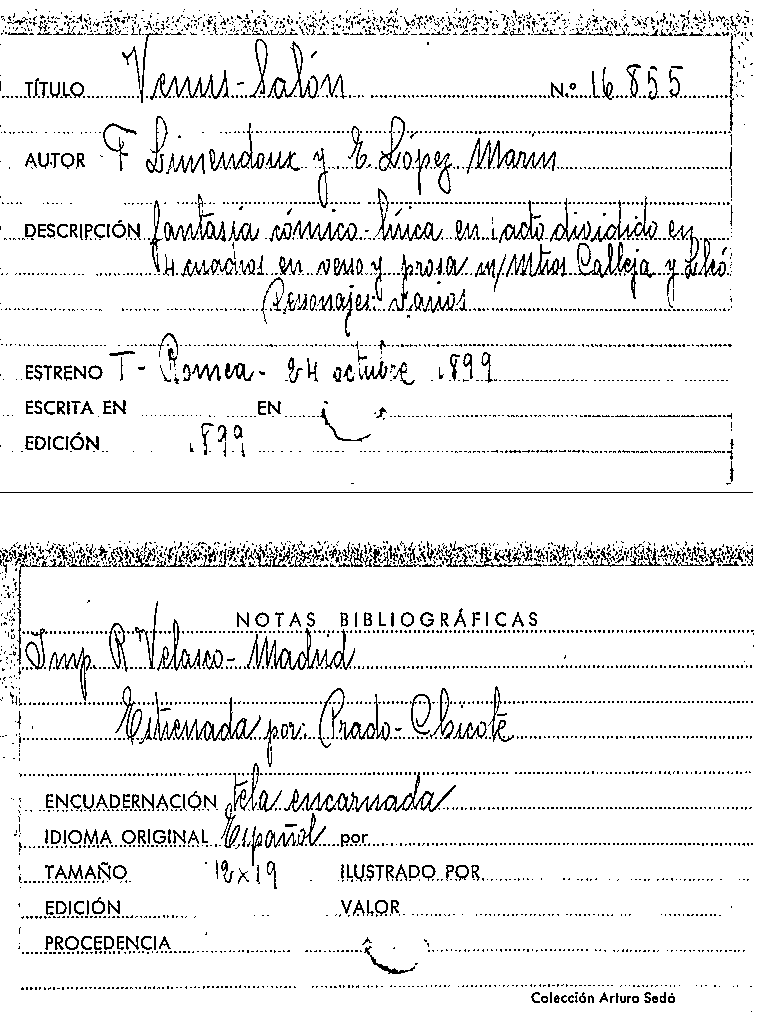 TÍTULO Venus-Salón N.º 16.855
AUTOR F Limendoux y E. López Marin
DESCRIPCIÓN fantasía cómico-lírica en 1 acto dividido en
4 cuadros en verso y prosa m/Mtros Calleja y Lleó
Personajes: Varios
ESTRENO T- Romea - 24 octubre 1899
ESCRITA EN EN
EDICIÓN 1899
NOTAS BIBLIOGRÁFICAS
Imp. R Velasco - Madrid
Estrenada por: Prado-Chicote
ENCUADERNACIÓN tela encarnada
IDIOMA ORIGINAL Español por
TAMAÑO 12x19 ILUSTRADO POR
EDICIÓN VALOR
PROCEDENCIA
Colección Arturo Sedó